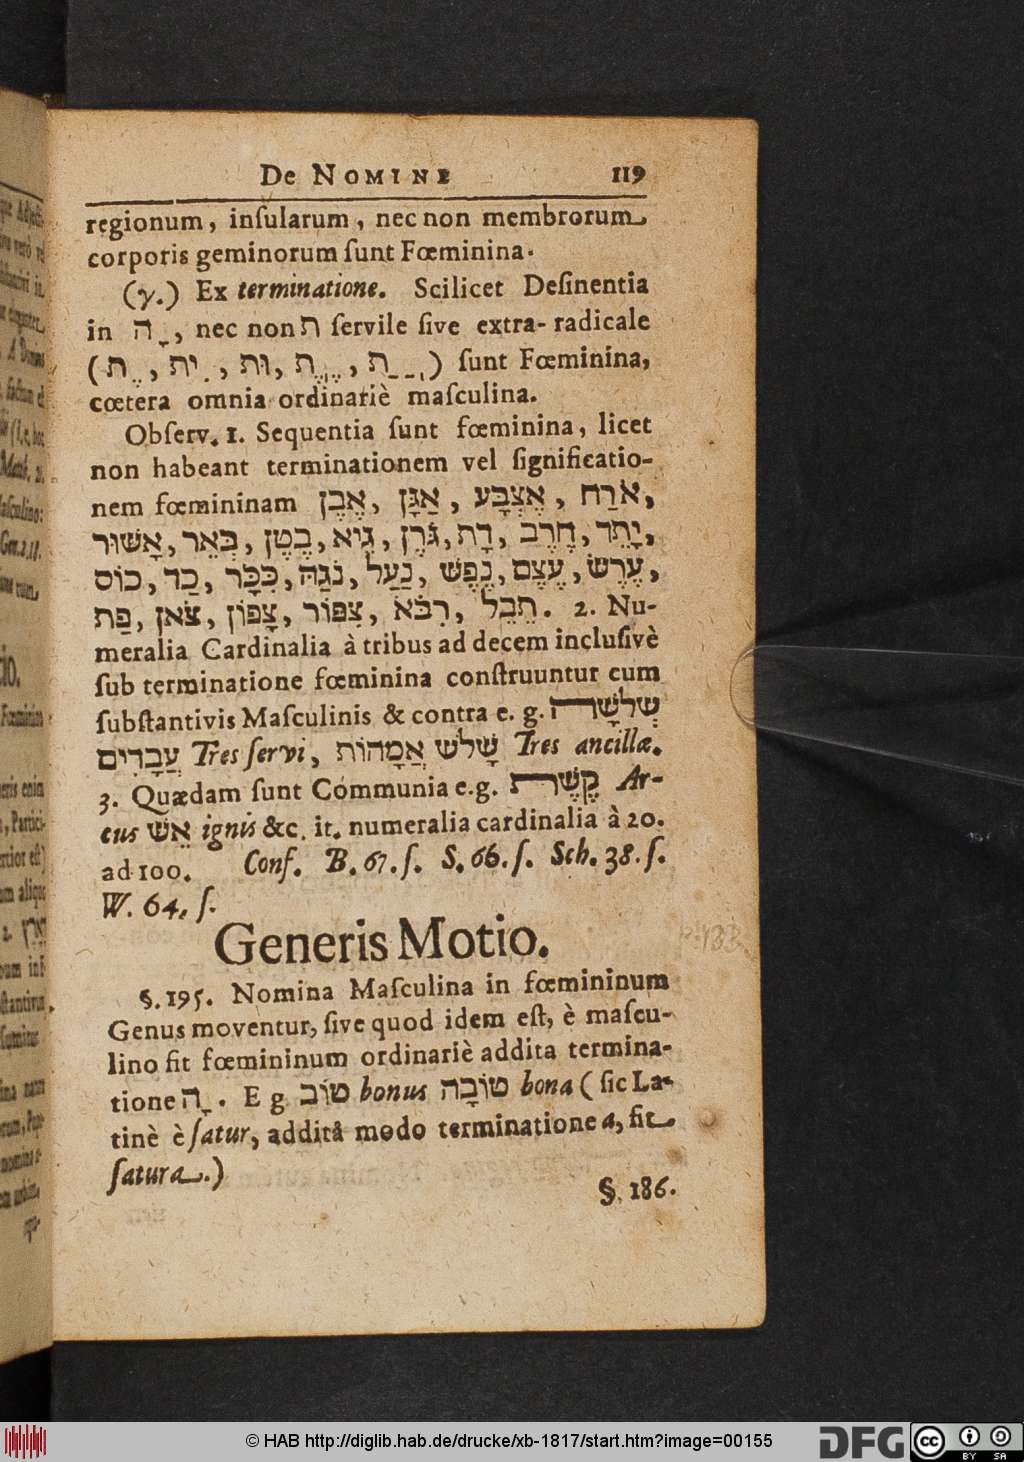 De NOMINE 119
regionum, inſularum, nec non membrorum
corporis geminorum ſunt Fœminina.
(γ.) Ex terminatione. Scilicet Deſinentia
in הָ, nec non ת ſervile ſive extra-radicale
sunt Fœminina,
cœtera omnia ordinariè maſculina.
Obſerv. 1. Sequentia ſunt fœminina, licet
non habeant terminationem vel ſignificatio-
nem fœmininam אֶבֶן, אַגָּן, אֶצְבָּע, אֹרַח,
אָשׁוּר, בְּאֵר, בֶטֶן, גַיְא, גֹּרֶן, דָת, חֶרֶב, יָתֵד,
כוֹס, כַד, כִּכָּר, נֹגַהּ, נַעַל, נֶפֶשׁ, עֶצֶם, עֶרֶשׂ,
פַת, צֹאן, צָפוֹן, צִפּוֹר, רִבֹּא, תֵבֵל. 2. Nu-
meralia Cardinalia à tribus ad decem incluſivè
ſub terminatione fœminina conſtruuntur cum
ſubſtantivis Maſculinis & contra e. g. שְׁלשָׁה
עֲבָדִים Tres ſervi, שָׁלשׁ אֲמָהוֹת Tres ancillæ.
3. Quædam ſunt Communia e. g. קֶשֶׁת Ar-
cus אֵשׁ ignis &c. it. numeralia cardinalia à 20.
ad 100. Conf. B. 67. ſ. S. 66. ſ. Sch. 38. ſ.
W. 64. ſ.
Generis Motio.
§. 195. Nomina Maſculina in fœmininum
Genus moventur, ſive quod idem eſt, è maſcu-
lino fit fœmininum ordinariè addita termina-
tione הָ. E g טוֹב bonus טוֹבָה bona (ſic La-
tinè è ſatur, additâ modo terminatione a, fit
ſatura.)
§. 186.
© HAB http://diglib.hab.de/drucke/xb-1817/start.htm?image=00155
DFG
cc BY SA